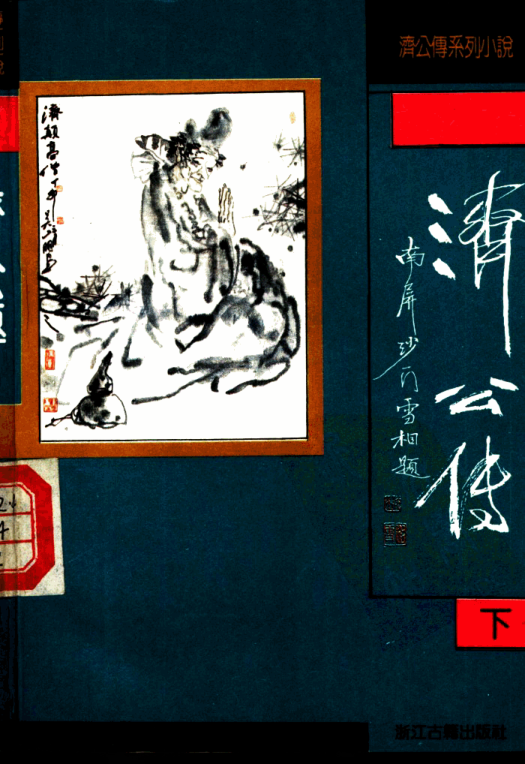 濟公傳系列小說
濟公传
南屏沙门雪相题
下
浙江古籍出版社
濟顛高僧